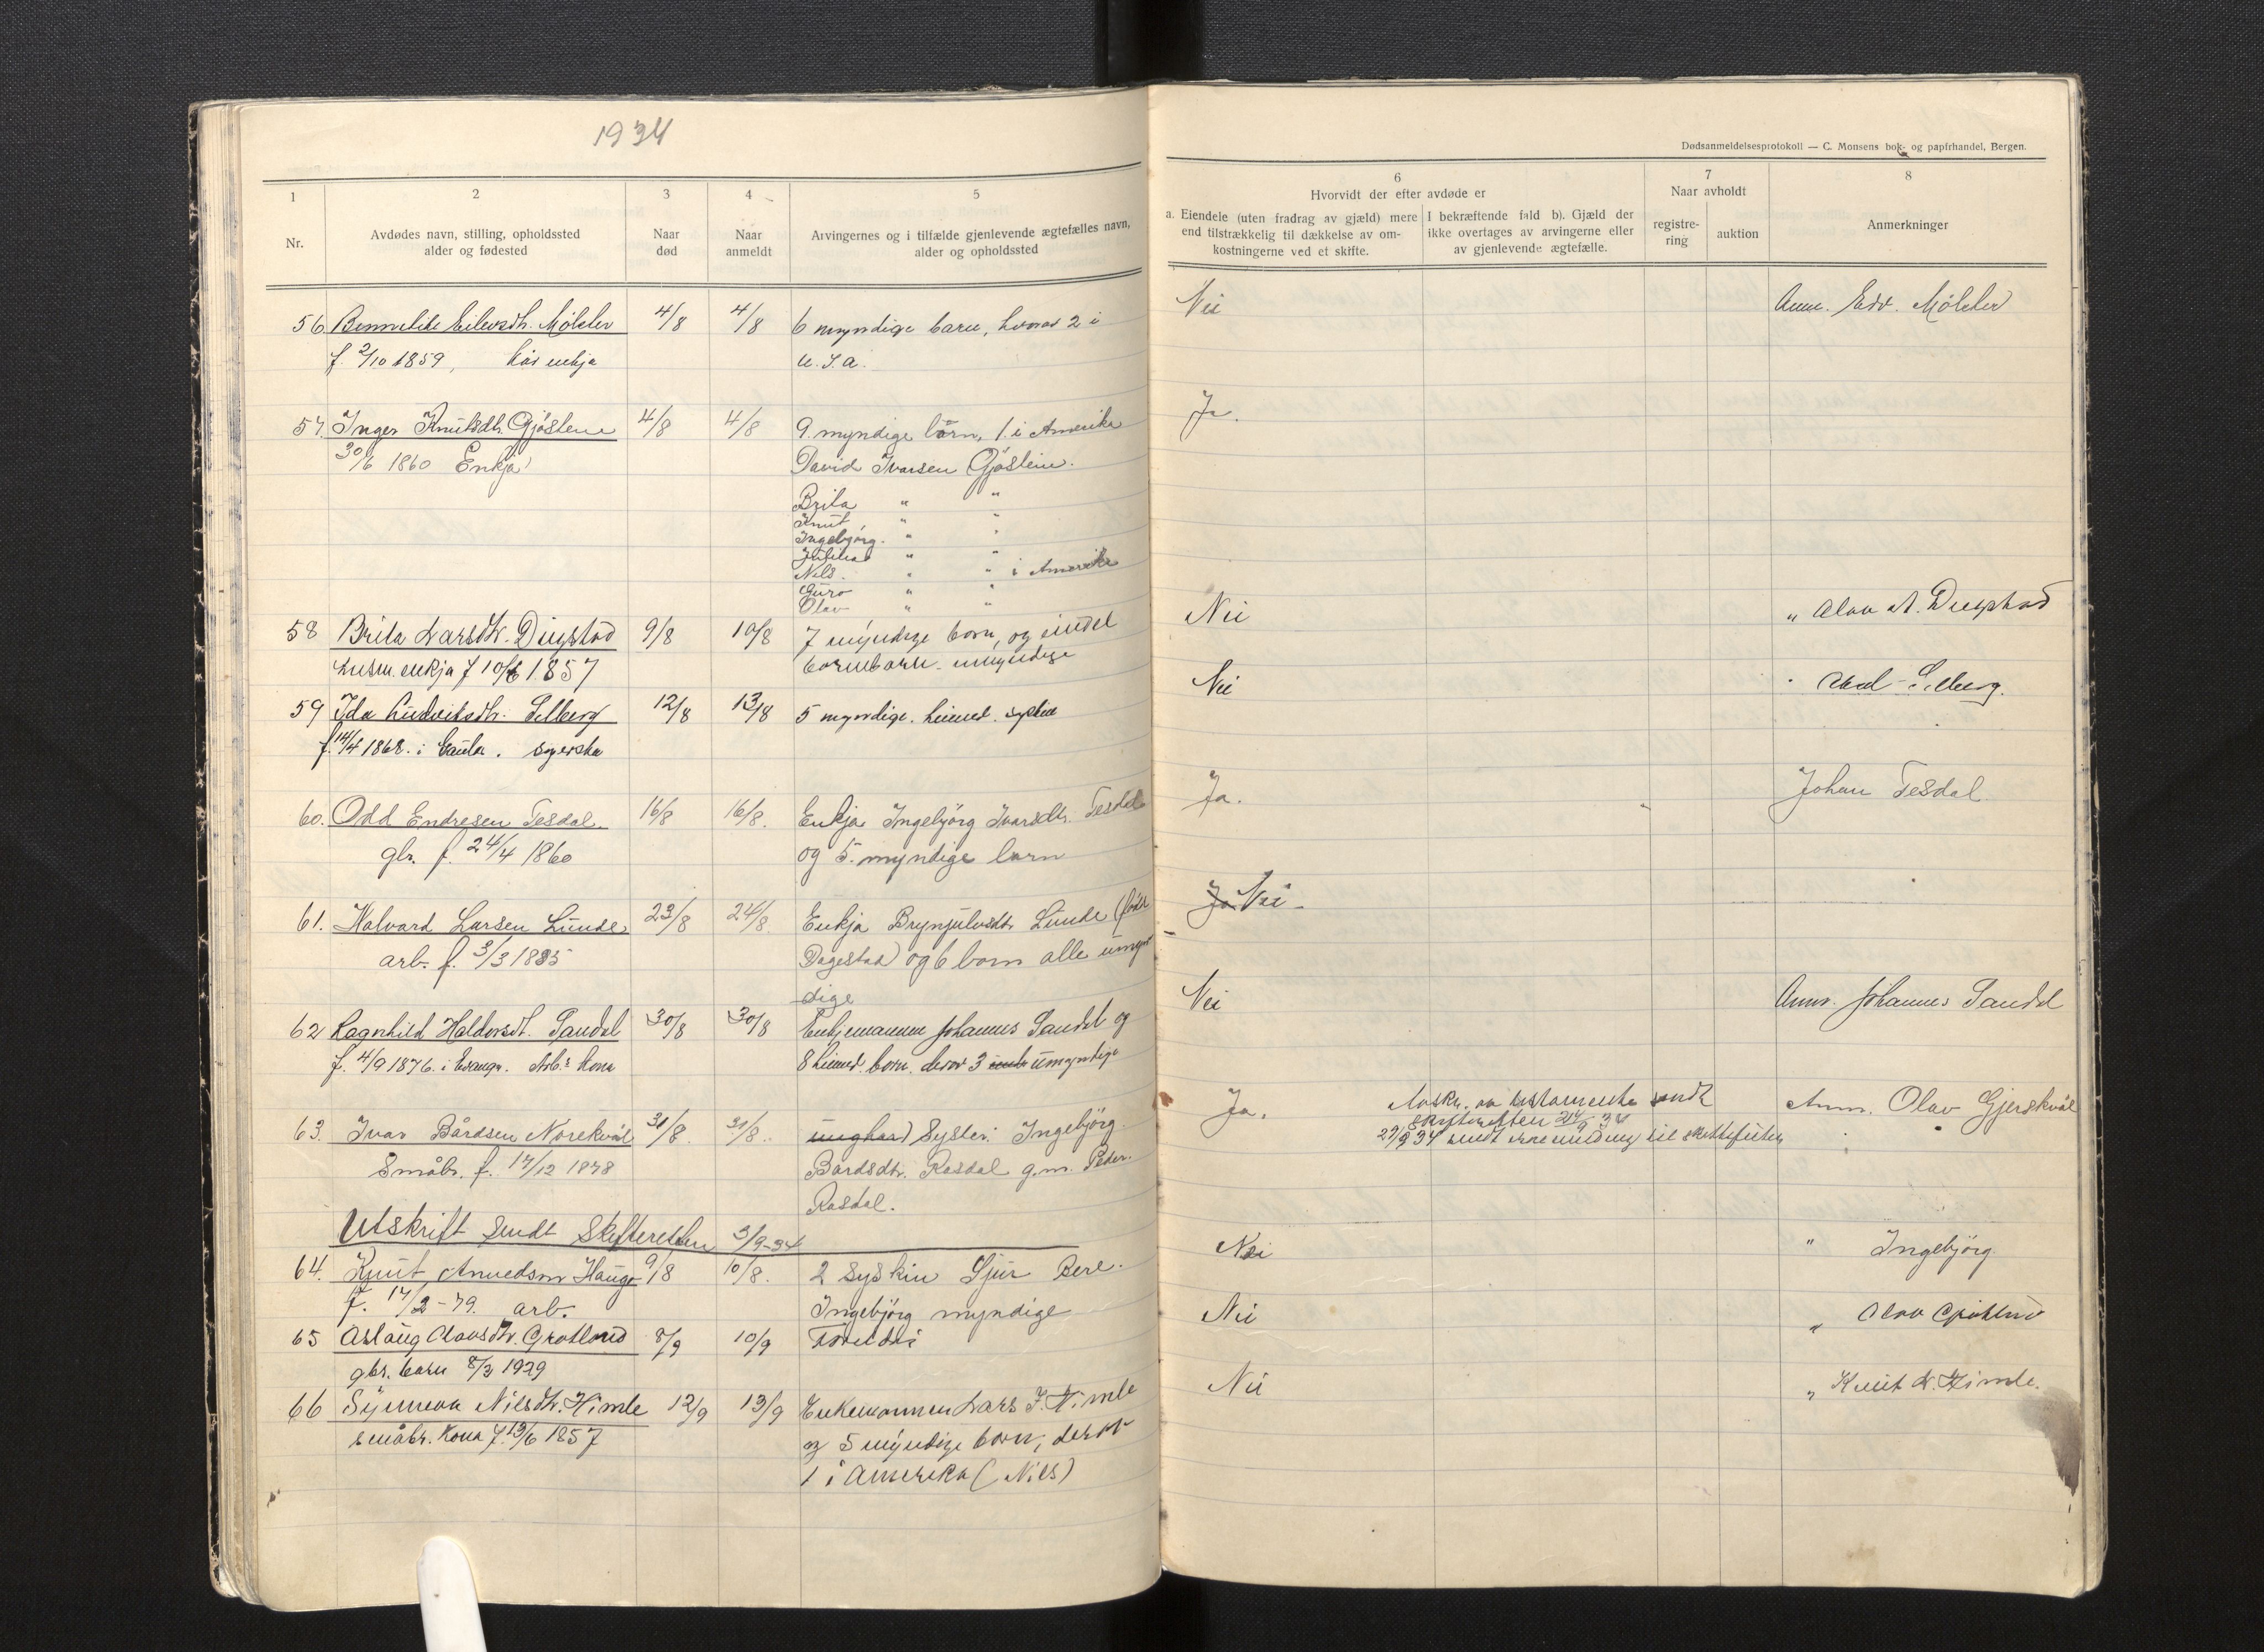 1934
Dødsanmeldelsesprotokoll — C. Monsens bok- og papirhandel, Bergen.
1
Nr.
2
Avdødes navn, stilling, opholdssted
alder og fødested
3
Naar
død
4
Naar
anmeldt
5
Arvingernes og i tilfælde gjenlevende ægtefælles navn,
alder og opholdssted
6
Hvorvidt der efter avdøde er
a. Eiendele (uten fradrag av gjæld) mere
end tilstrækkelig til dækkelse av om-
kostningerne ved et skifte.
I bekræftende fald b). Gjæld der
ikke overtages av arvingerne eller
av gjenlevende ægtefælle.
7
Naar avholdt
registre-
ring
auktion
8
Anmerkninger
56 Eilevsdtr. Mølster 4/8 4/8 6 myndige barn, hvorav 2 i Nei Anm. Edv. Mølster
f. 2/10 1859, enkja U.S.A.
57. Inger Knutsdtr. Gjøstein 4/8 4/8 9 myndige børn, 1. i Amerika Ja.
30/6 1860 Enkja David Ivarsen Gjøstein.
Brita " "
Knut " "
Ingebjørg. " "
" "
Nils. " " i Amerika
Guro " "
Olav " "
58 Brita Larsdtr. Dugstad 9/8 10/8 7 myndige born, og eindel Nei " Olav A. Dugstad
husm. enkja f 10/6 1857 bornebarn umyndige
59 Ida Ludvitsdtr. Selberg 12/8 13/8 5 myndige. syskin Nei Selberg.
f. 14/4 1868. i syerska
60. Odd Endresen Tesdal. 16/8 16/8. Enkja Ingebjørg Ivarsdtr. Tesdal Ja. Johan Tesdal
gbr. f. 24/4 1860 og 5. myndige born
61. Halvard Larsen Lunde 23/8 24/8. Enkja Brynjulvsdtr. Lunde (født Ja Nei
arb. f. 3/3 1885 Dagestad) og 6 born alle umyn
dige
62 Ragnhild Haldorsdt. Sandal 30/8 30/8 Enkjemannen Johannes Sandal og Nei Anm. Johannes Sandal
f. 4/9 1876. i Evanger. Arb.s kona 8 born. derav 3 umyndige
63. Ivar Bårdsen Norekvål 31/8. 31/8. ungkar) Syster: Ingebjørg Ja. Avskr. av testamente sendt Anm. Olav Gjerskvål
skifteretten 24/9 34
29/9 34 sendt
Småbr. f. 17/12 1878 Bårdsdtr. Rasdal g.m. Peder.
Rasdal.
Utskrift sendt Skifteretten 3/9-34
64. Knut Anvedsen Hauge 9/8 10/8. 2 syskin Sjur Nei " Ingebjørg
f. 17/2-79. arb. Ingebjørg myndige
65 Aslaug Olavsdtr. Grotland 8/9 10/9 Foreldri Nei " Olav Grotland
gbr. barn 8/2 1929
66 Synneva Nilsdtr. Himle 12/9 13/9 Enkemannen Lars J. Himle Nei " Knut L. Himle.
småbr. kona f. 13/6 1857 og 5 myndige born, derav
1 i Amerika (Nils)